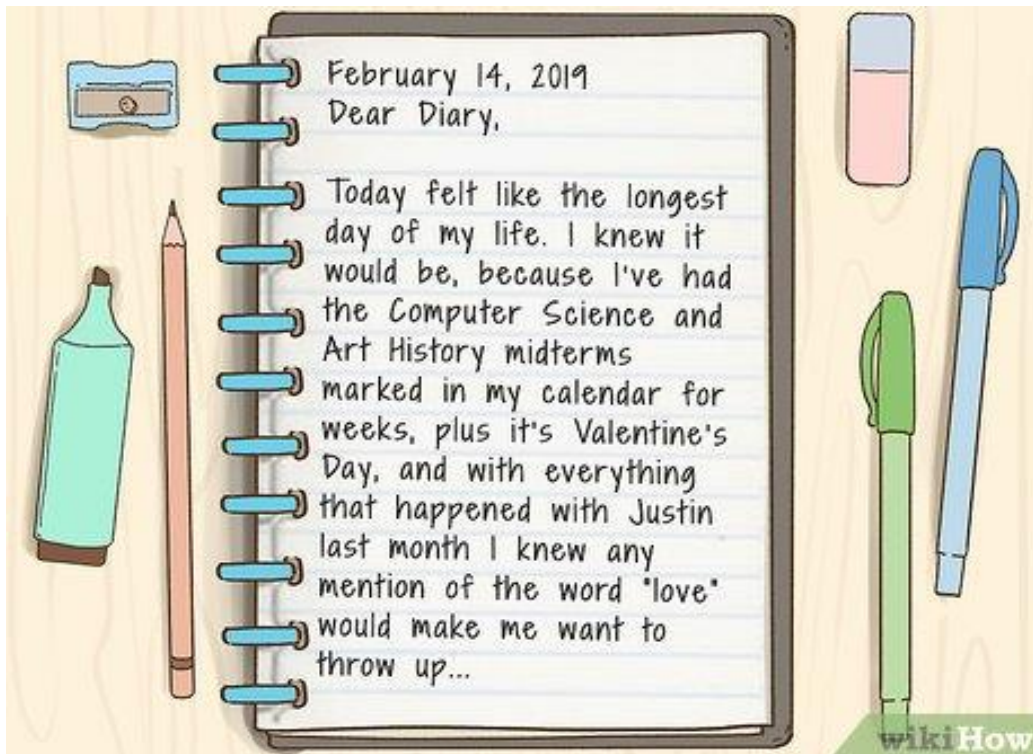 February 14, 2019
Dear Diary,
Today felt like the longest
day of my life. I knew it
would be, because I've had
the Computer Science and
Art History midterms
marked in my calendar for
weeks, plus it's Valentine's
Day, and with everything
that happened with Justin
last month I knew any
mention of the word "love"
would make me want to
throw up...
wikiHow